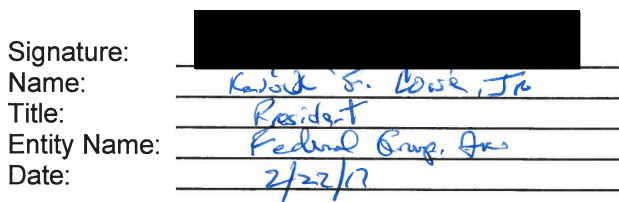 Signature:
Name: S. Lowe, Jr
Title: President
Entity Name: Federal Group, Inc
Date: 2/22/17